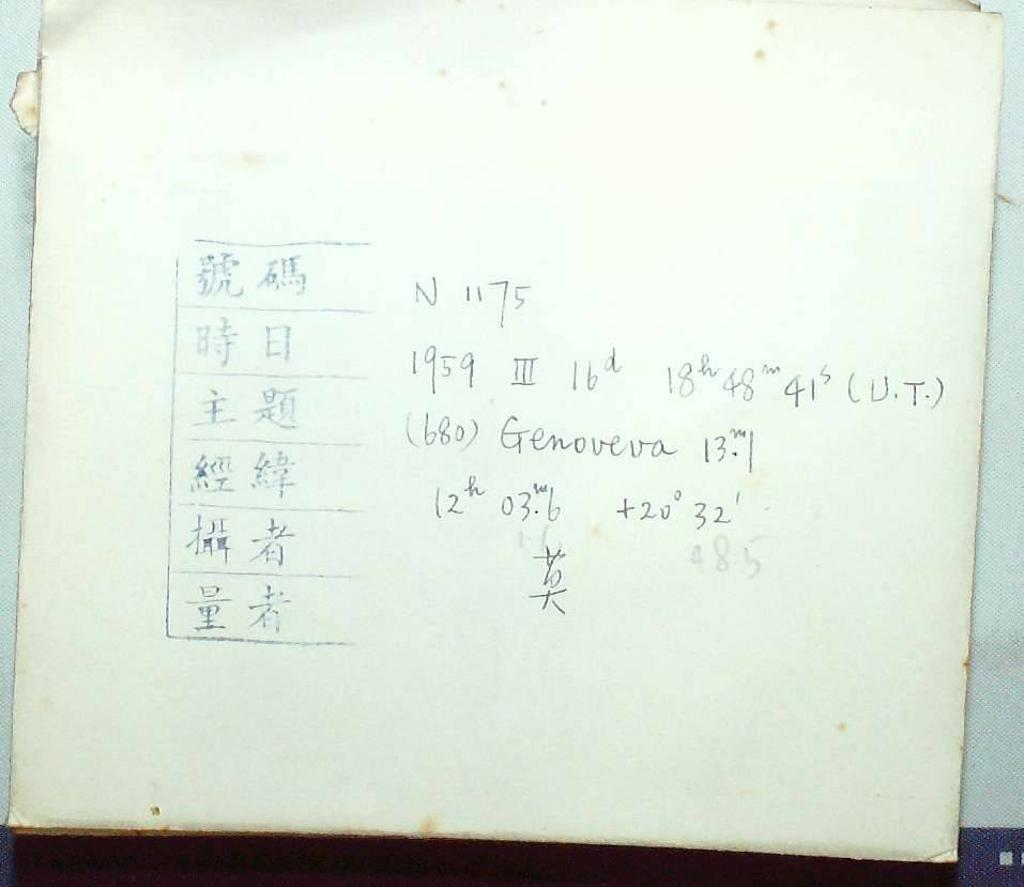 號碼 N 1175
時日 1959 III 16ᵈ 18ʰ48ᵐ41ˢ (U.T.)
主題 (680) Genoveva 13ᵐ.1
經緯 12ʰ 03ᵐ.6 +20° 32'
攝者 莫
量者